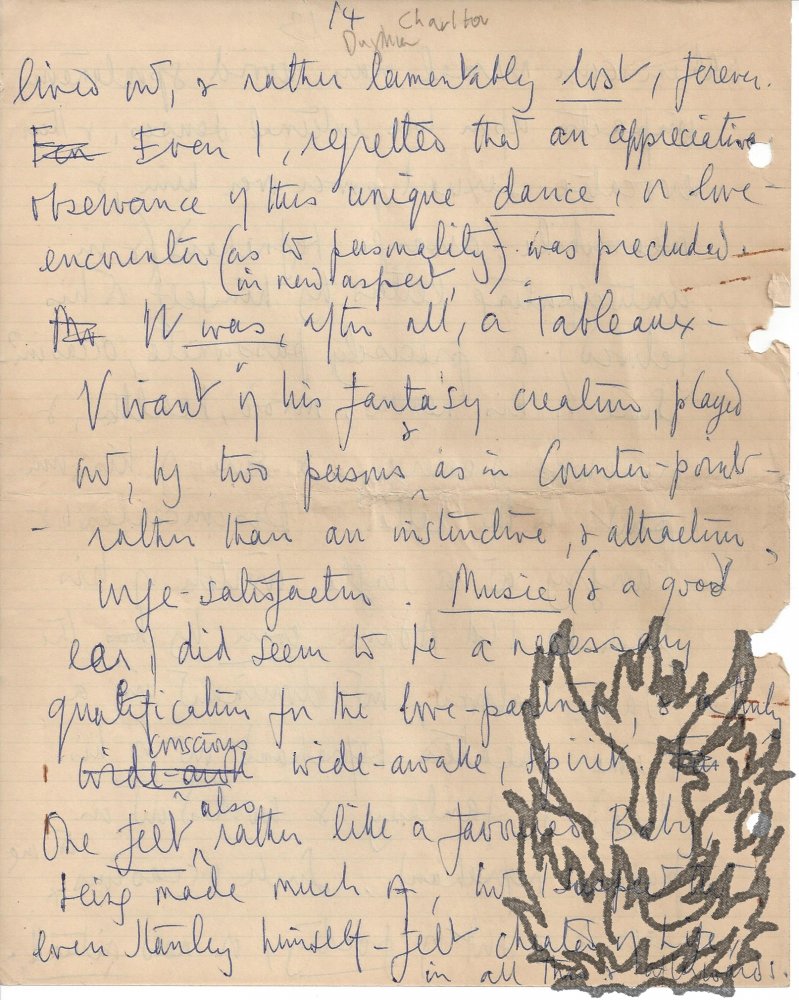 14 Charlton
Daphne
lived out, & rather lamentably lost, forever.
Even Even I, regretted that an appreciative
observance of this unique dance, or love-
encounter (as to personality) was precluded.
(in new aspect,
It was, after all, a Tableaux-
Vivant of his fantasy creation, played
out, by two persons & as in Counter-point-
- rather than an instinctive, & attraction,
urge-satisfaction. Music, (& a good
ear) did seem to be a necessary
qualification for the love-partner, & a truly
conscious
wide-awake wide-awake, spirit.
also
One felt, rather like a favoured Baby,
being made much of, but I suspect that
even Stanley himself - felt cheated of Life,
in all this & afterwards.